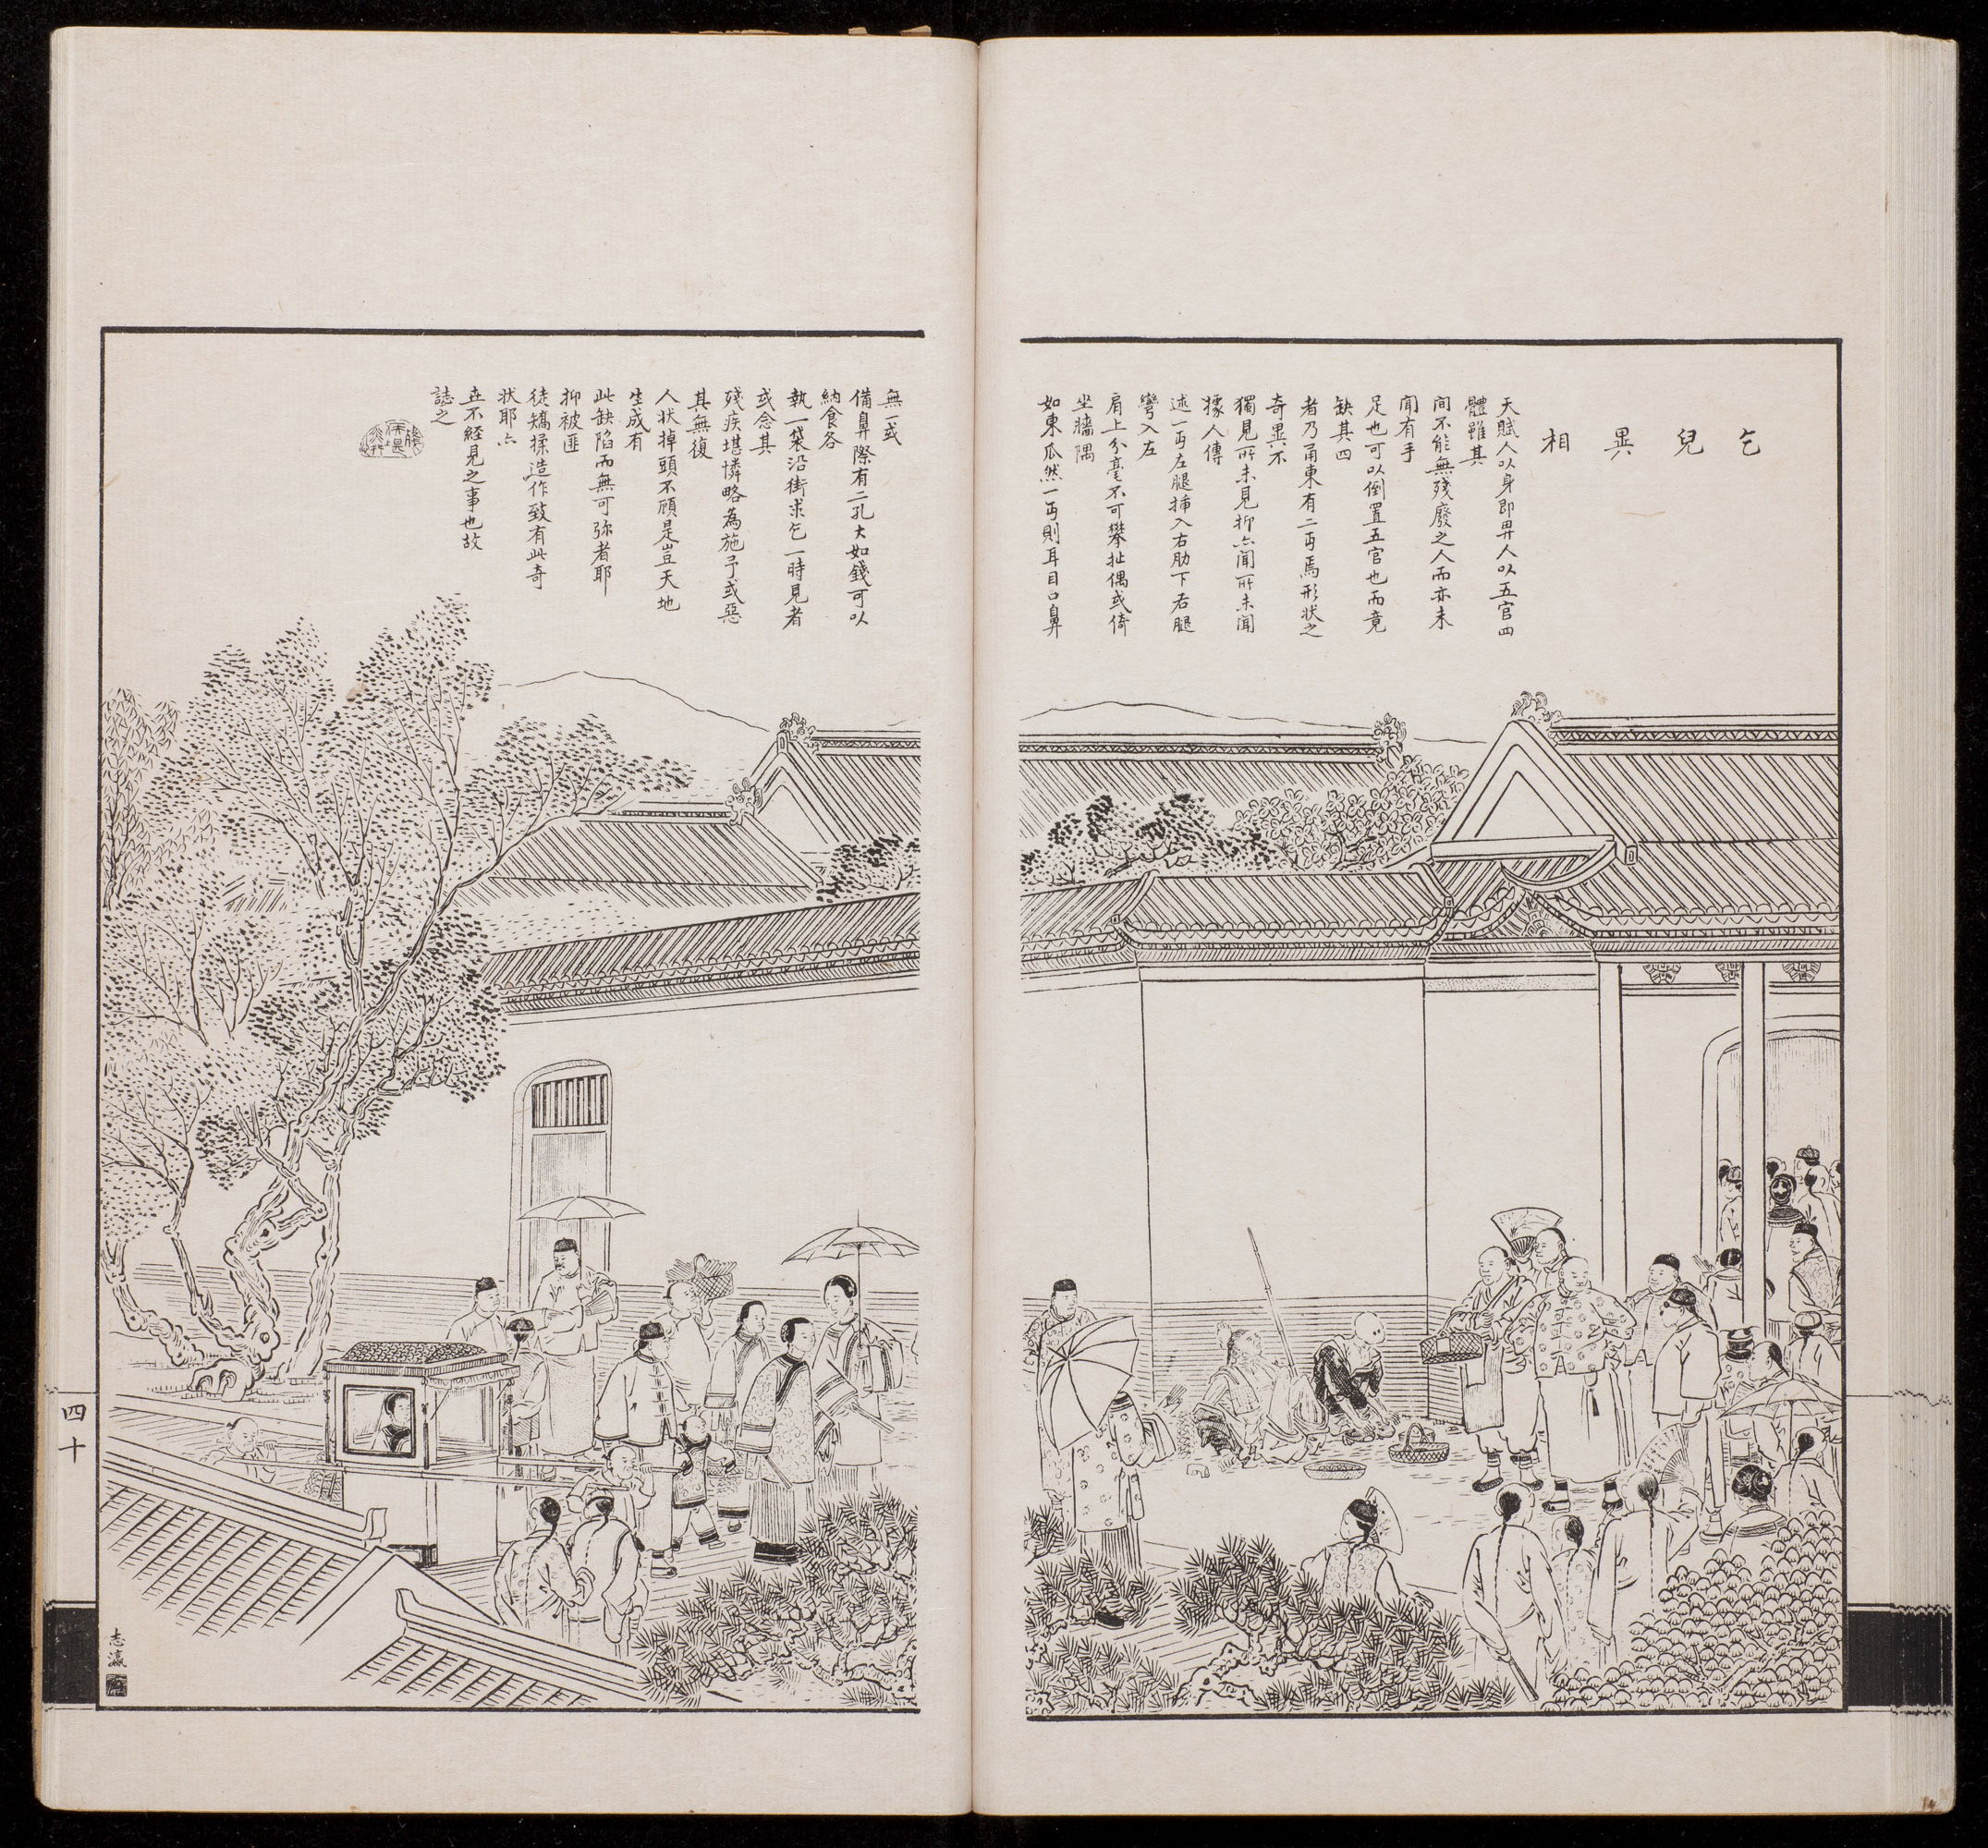 乞兒異相
天賦人以身即畀人以五官四
體雖其
間不能無殘廢之人而亦未
聞有手
足也可以倒置五官也而竟
缺其四
者乃甬東有二丐焉形狀之
奇異不
獨見所未見抑亦聞所未聞
據人傳
述一丐左腿插入右肋下右腿
彎入左
肩上分毫不可攀扯偶或倚
坐牆隅
如東瓜然一丐則耳目口鼻
無一或
備鼻際有二孔大如錢可以
納食各
執一袋沿街求乞一時見者
或念其
殘疾堪憐略為施予或惡
其無復
人狀掉頭不顧是豈天地
生成有
此缺陷而無可弥者耶
抑被匪
徒矯揉造作致有此奇
狀耶亦
世不經見之事也故
誌之
四十
志瀛